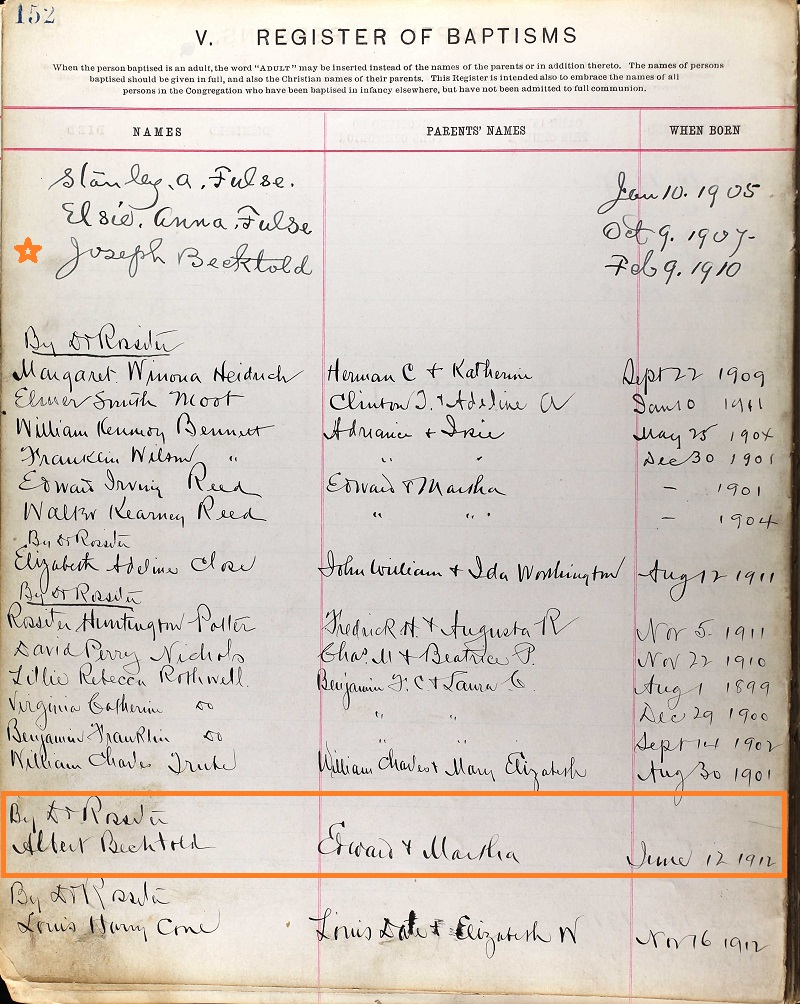 152
V. REGISTER OF BAPTISMS
When the person baptised is an adult, the word "ADULT" may be inserted instead of the names of the parents or in addition thereto. The names of persons
baptised should be given in full, and also the Christian names of their parents. This Register is intended also to embrace the names of all
persons in the Congregation who have been baptised in infancy elsewhere, but have not been admitted to full communion.
NAMES PARENTS' NAMES WHEN BORN
Stanley. A. Fulse. Jan 10. 1905
Elsie. Anna. Fulse Oct 9. 1907-
Joseph Becktold Feb 9. 1910
By Dr Rossiter
Margaret Winona Heidrich Herman C + Katherine Sept 22 1909
Elmer Smith Moot Clinton I. + Adeline A Jan 10 1911
William Kennoy Bennett May 25 1904
Franklin Wilson " " " Dec 30 1901
Edward Irving Reed Edward + Martha - 1901
Walter Kearney Reed " " - 1904
By Dr Rossiter
Elizabeth Adeline Close John William + Ida Worthington Aug 12 1911
By Dr Rossiter
Rossiter Huntington Potter Fredrick H. + Augusta R Nov 5. 1911
David Perry Nichols Chas. M + Beatrice P. Nov 22 1910
Lillie Rebecca Rothwell. Benjamin F. C + Laura C. Aug 1 1899
Virginia Catherine do " " Dec 29 1900
Benjamin Franklin do " " Sept 14 1902
William Charles Trube William Charles + Mary Elizabeth Aug 30 1901
By Dr Rossiter
Albert Becktold Edward + Martha June 12 1912
By Dr Rossiter
Louis Harry Cone Louis Date + Elizabeth W Nov 16 1912